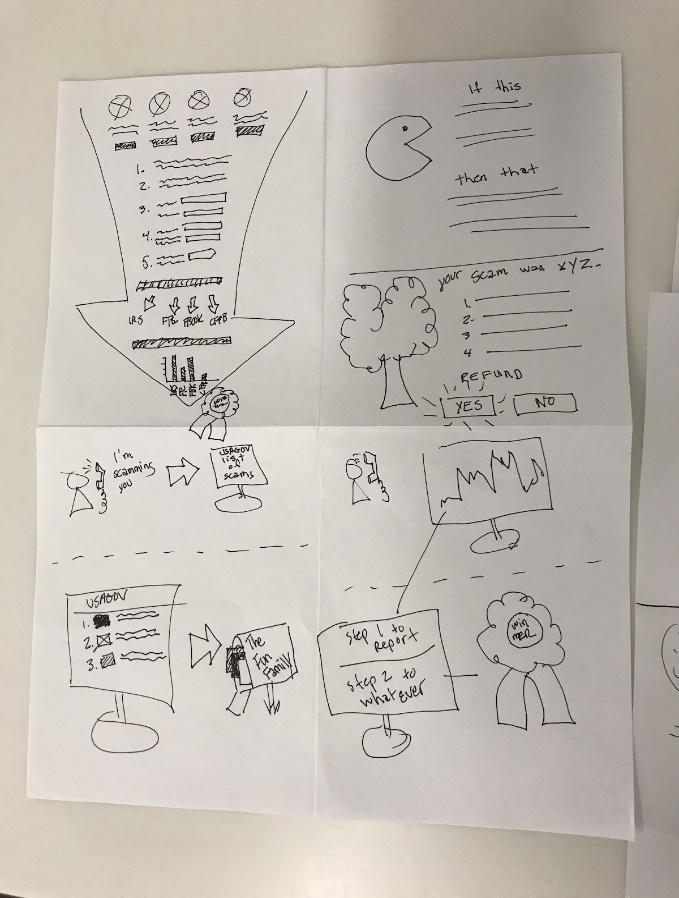 1.
2.
3.
4.
5.
IRS FTC FBOOK CFPB
If this
then that
your scam was xyz.
1.
2.
3
4
REFUND
YES NO
I'm
scamming
you
USAGOV
list
of
scams
USAGOV
1.
2.
3.
The
Fun
Family
Step 1 to
Report
Step 2 to
whatever
win
nER